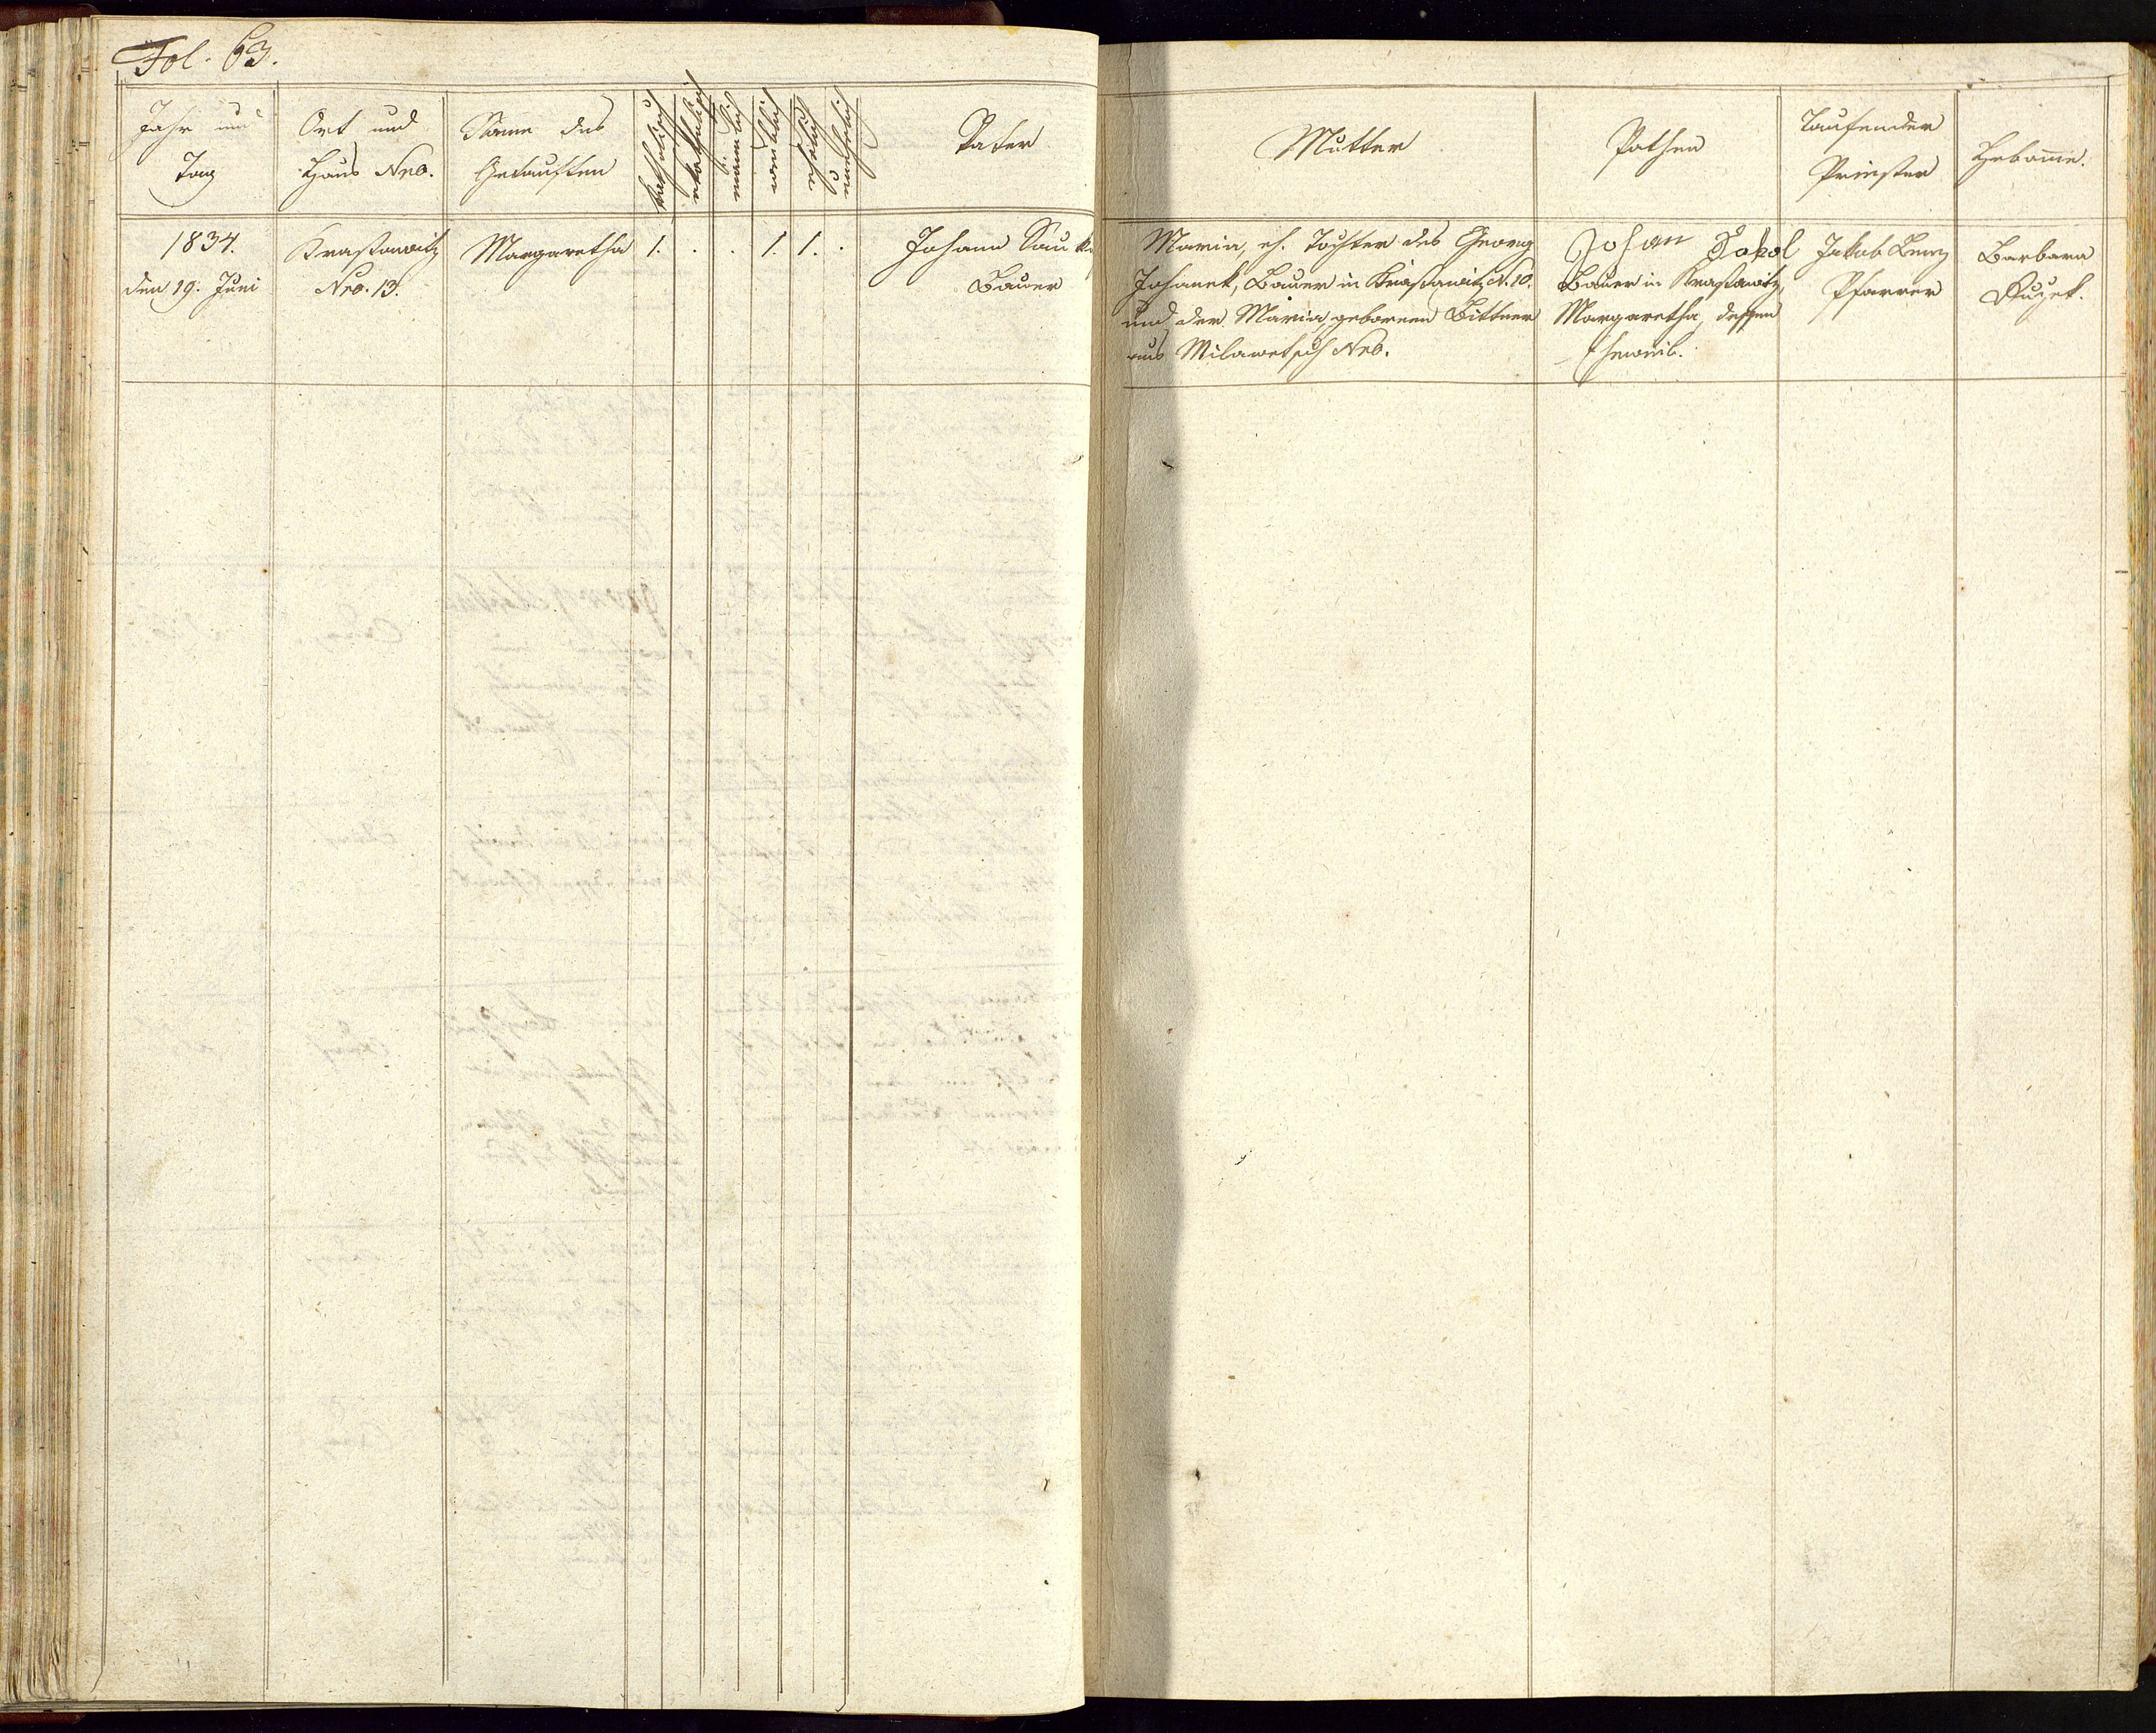 Fol. 63.
Jahr und
Tag
Ort und
Haus Nro.
Name des
Getauften
katholisch
akatholisch
männlich
weiblich
ehelich
unehelich
Vater
Mutter
Pathen
Taufender
Priester
Hebamme.
1834.
den 19. Juni
Kraßowitz
Nro. 13.
Margaretha
1. . . 1. 1. .
Johann
Bauer
Maria, eh. Tochter des Georg
Johanek, Bauer in Kraßawitz N. 10.
und der Maria, geborenen Bittner
aus Milawetsch Nro.
Johan Sokol
Bauer in Kraßawitz,
Margaretha, dessen
Eheweib.
Jakob Benz
Pfarrer
Barbara
Duzek.